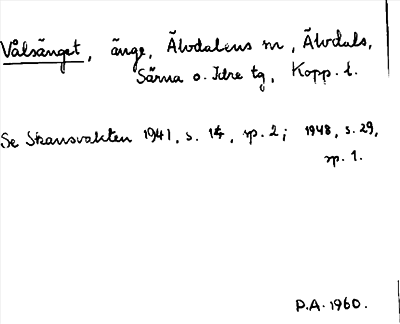 Vålsänget, änge, Älvdalens m, Älvdals,
Särna o. Idre tg, Kopp. l.
Se Skansvakten 1941, s. 14, sp. 2; 1948, s. 29,
sp. 1.
P.A. 1960.